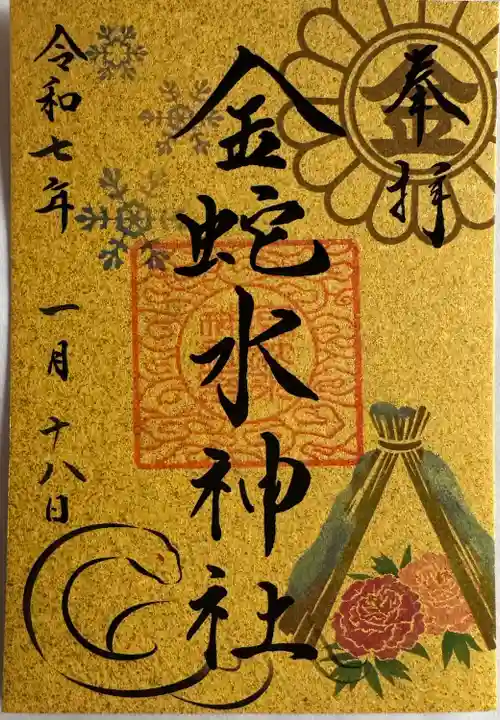 奉拝
金
金蛇水神社
令和七年 一月十八日